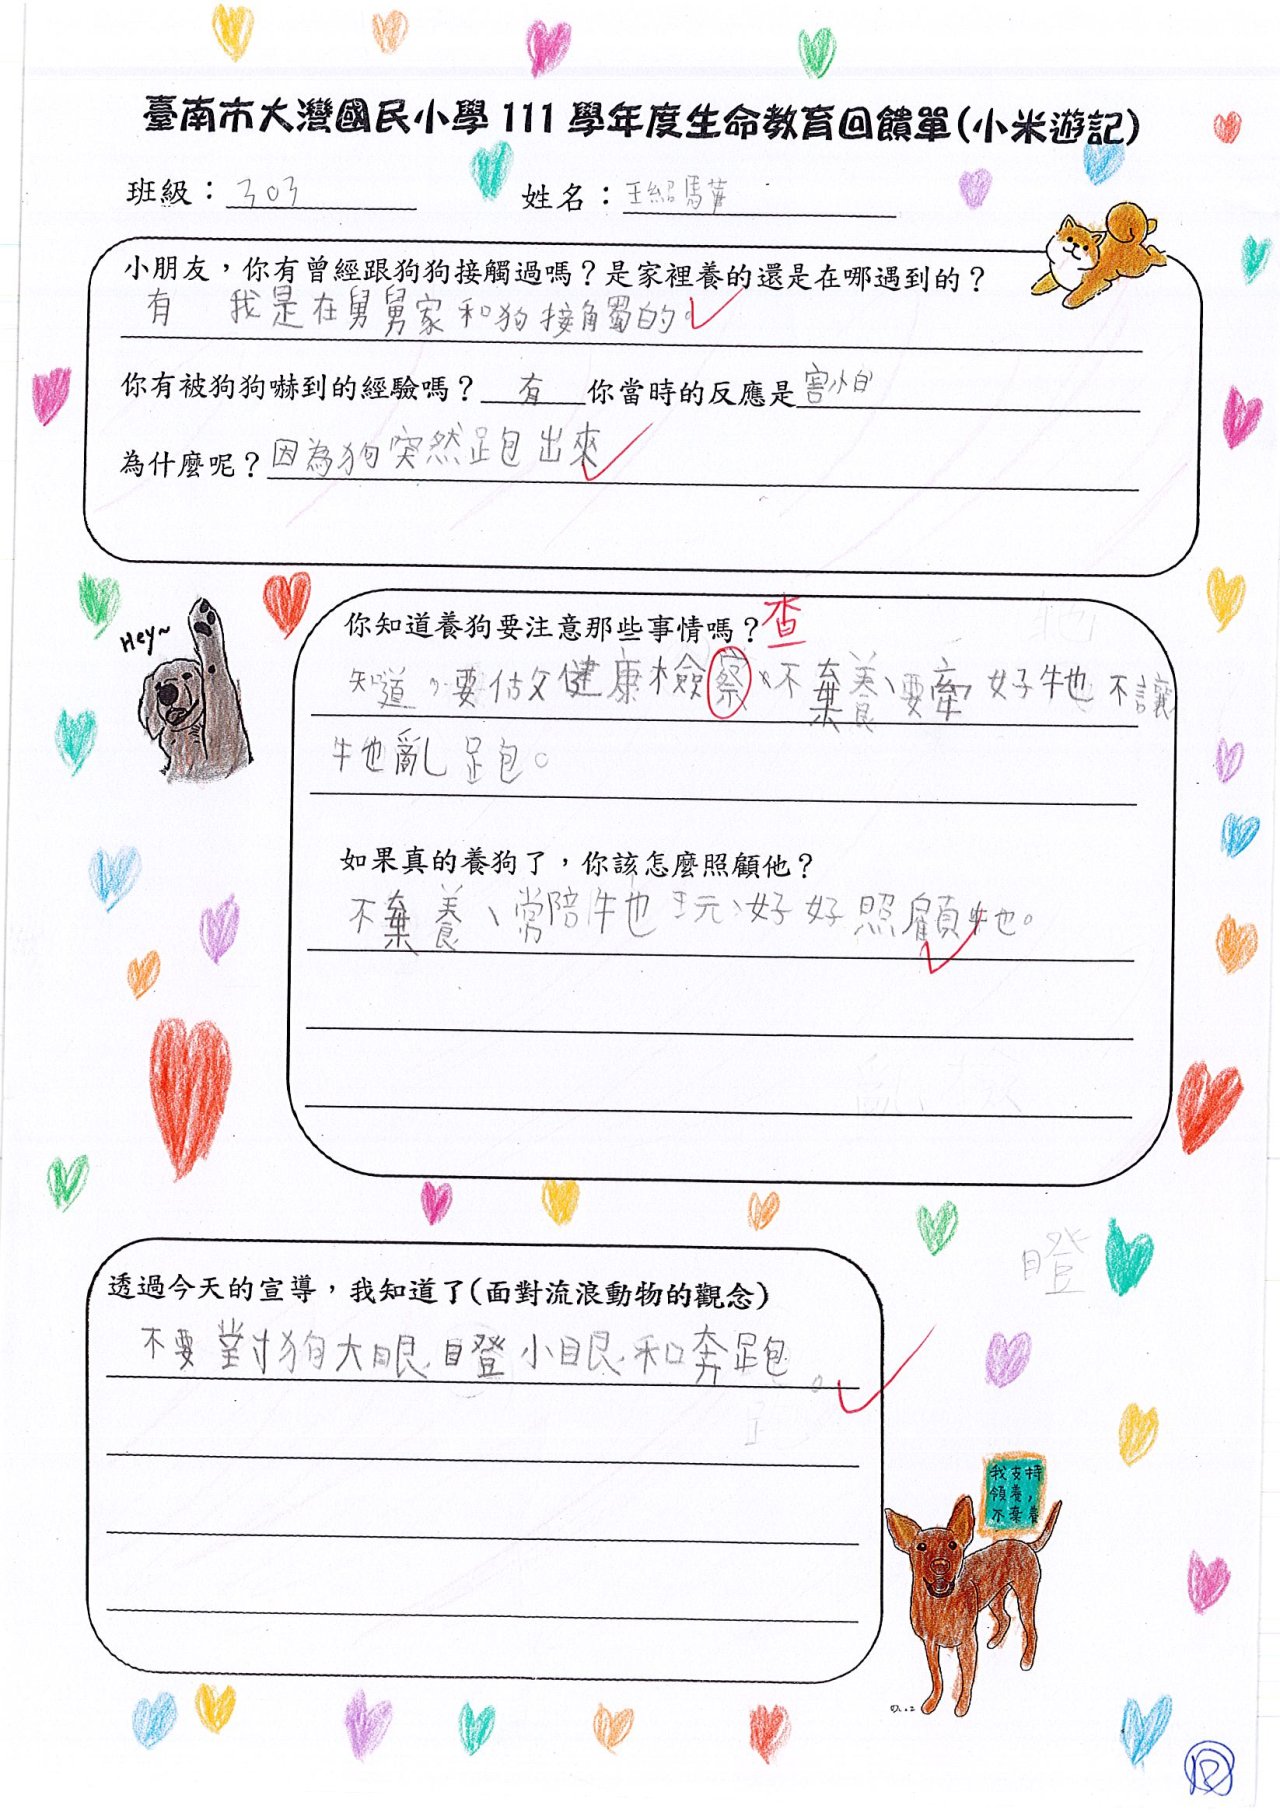 臺南市大灣國民小學111學年度生命教育回饋單(小米遊記)
班級：303 姓名：王紹
小朋友，你有曾經跟狗狗接觸過嗎？是家裡養的還是在哪遇到的？
有 我是在舅舅家和狗接觸的。
你有被狗狗嚇到的經驗嗎？有 你當時的反應是害怕
為什麼呢？因為狗突然跑出來
Hey~
你知道養狗要注意那些事情嗎？查
知道。要做健康檢察、不棄養、要牽好牠不讓
牠亂跑。
如果真的養狗了，你該怎麼照顧他？
不棄養、常陪牠玩、好好照顧牠。
瞪
透過今天的宣導，我知道了(面對流浪動物的觀念)
不要對狗大眼瞪小眼和奔跑。
我支持
領養，
不棄養